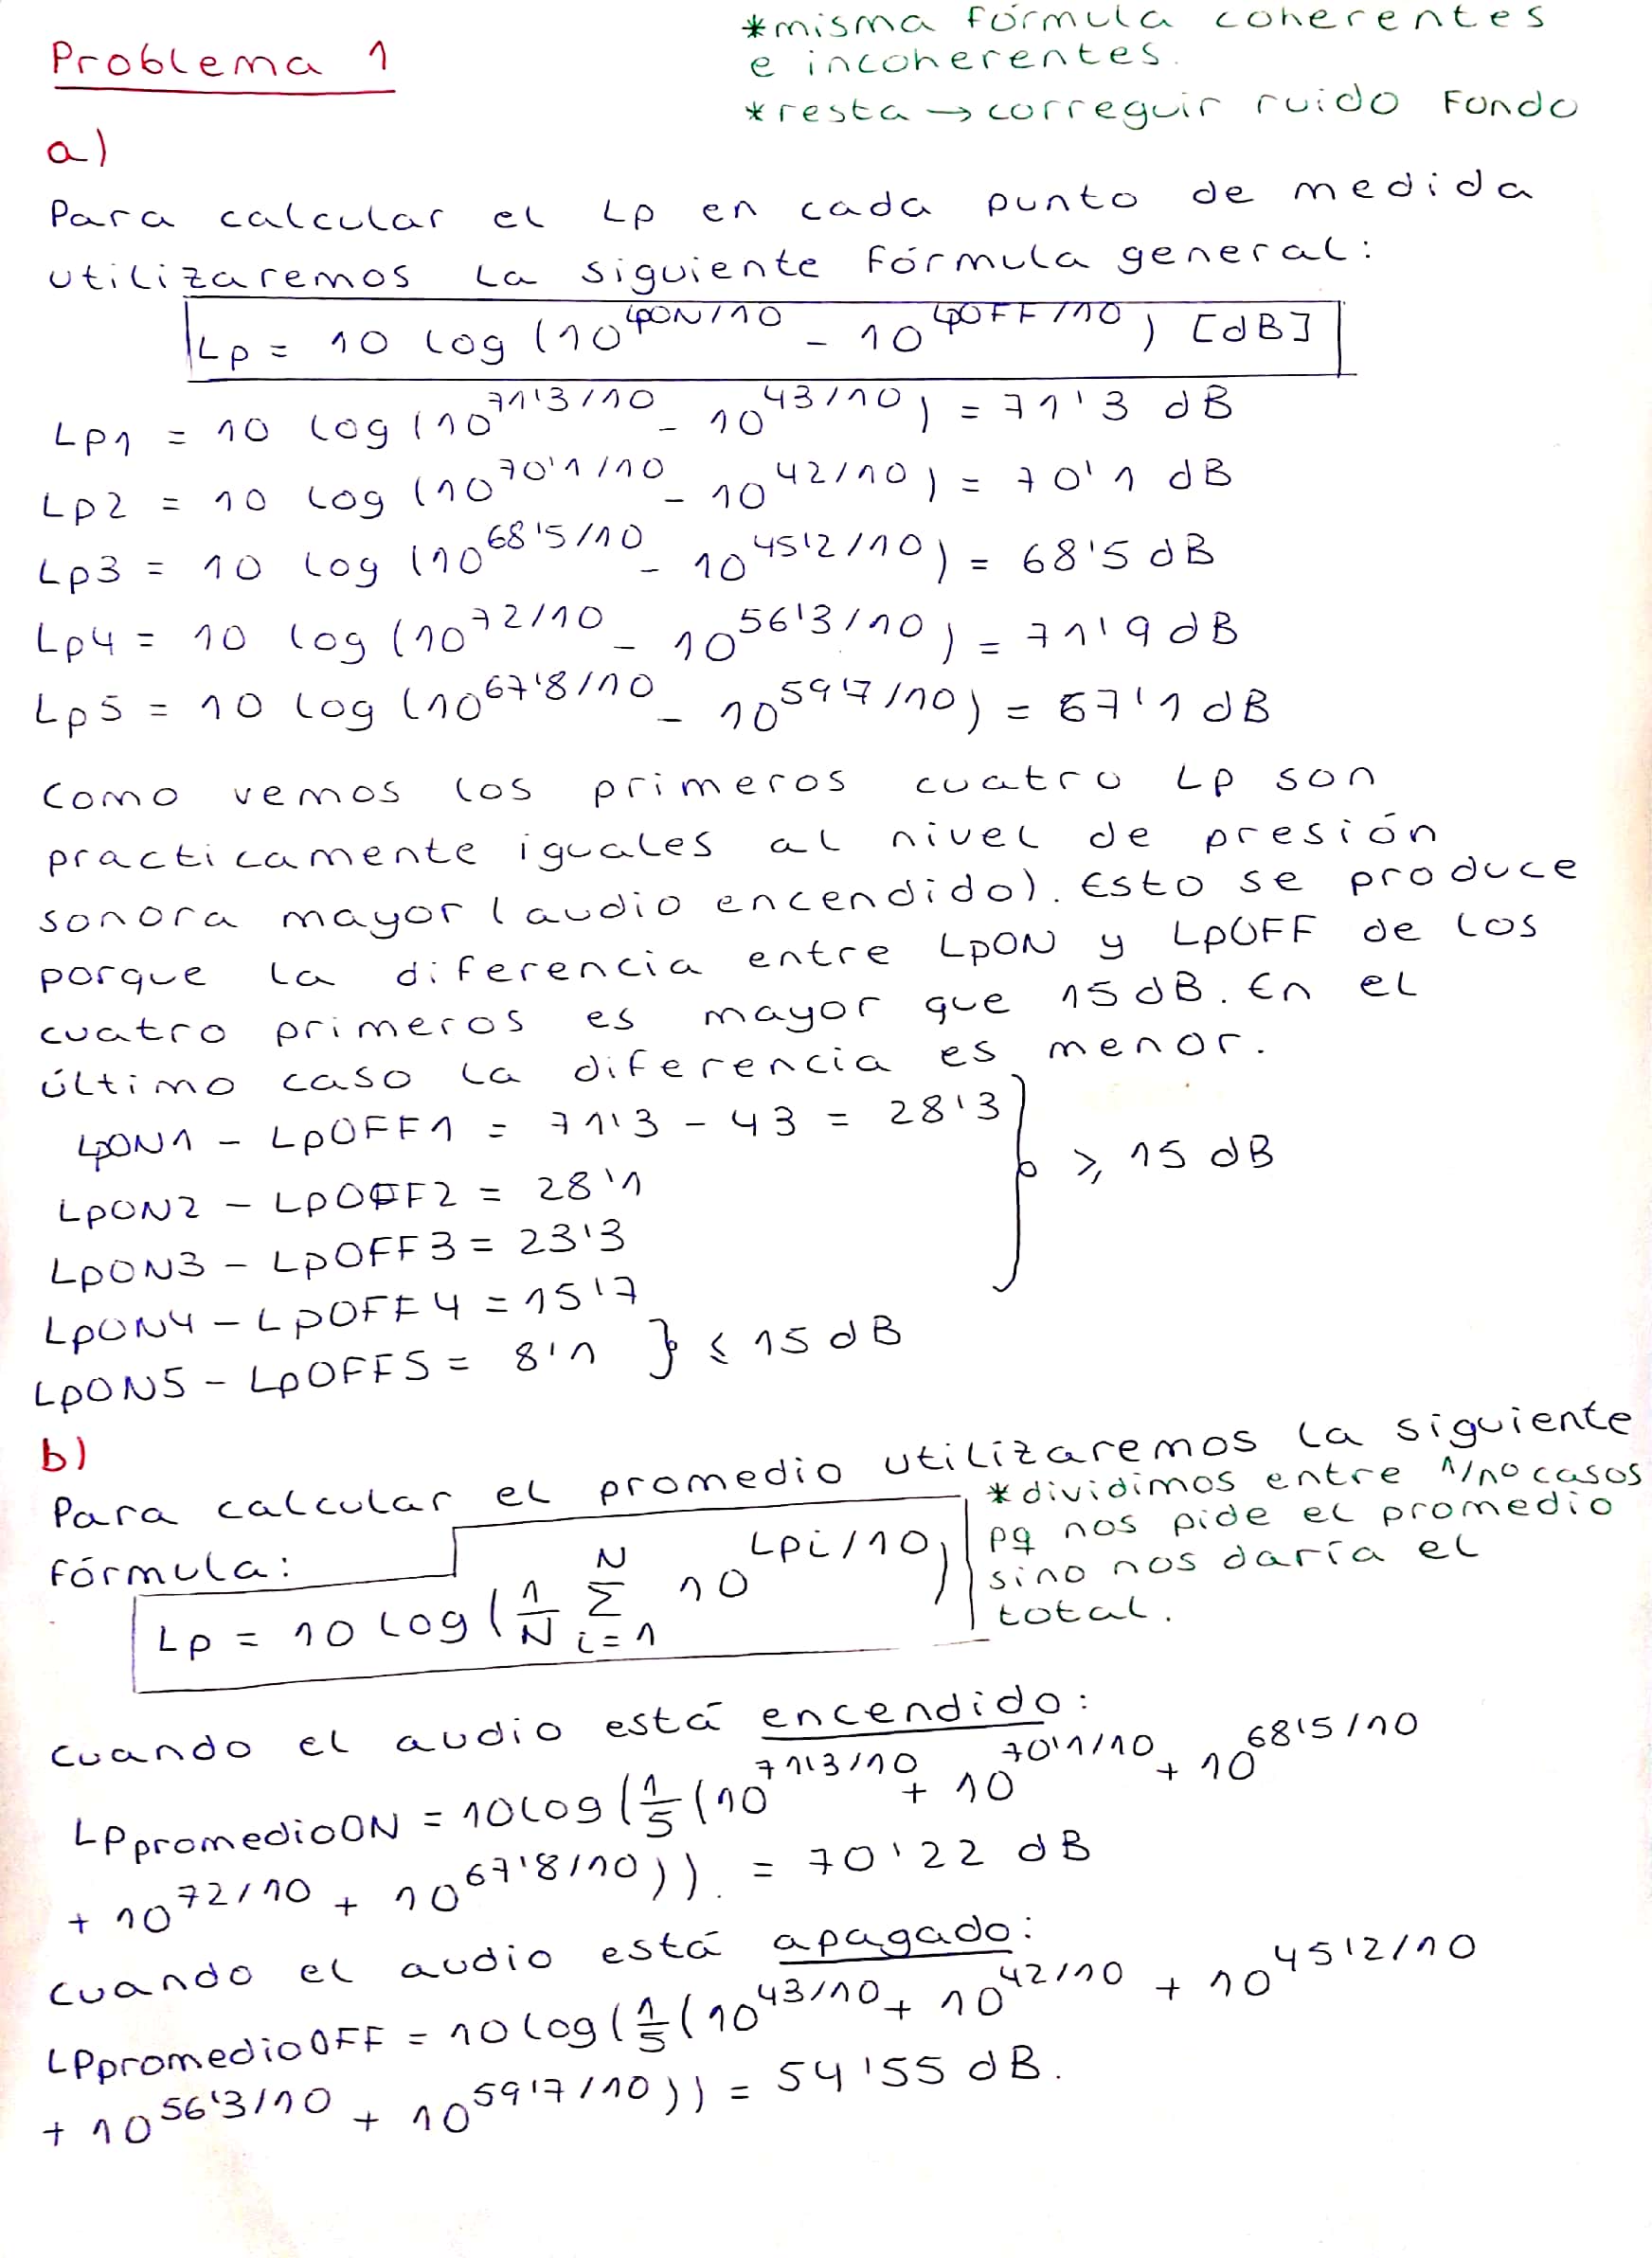 *misma fórmula coherentes
e incoherentes.
*resta → correguir ruido fondo
Problema 1
a)
Para calcular el Lp en cada punto de medida
utilizaremos la siguiente fórmula general:
Lp = 10 log (10^LpON/10 - 10^LpOFF/10) [dB]
Lp1 = 10 log (10^71'3/10 - 10^43/10) = 71'3 dB
Lp2 = 10 log (10^70'1/10 - 10^42/10) = 70'1 dB
Lp3 = 10 log (10^68'5/10 - 10^45'2/10) = 68'5 dB
Lp4 = 10 log (10^72/10 - 10^56'3/10) = 71'9 dB
Lp5 = 10 log (10^67'8/10 - 10^59'7/10) = 67'1 dB
Como vemos los primeros cuatro Lp son
practicamente iguales al nivel de presión
sonora mayor (audio encendido). Esto se produce
porque la diferencia entre LpON y LpOFF de los
cuatro primeros es mayor que 15 dB. En el
último caso la diferencia es menor.
LpON1 - LpOFF1 = 71'3 - 43 = 28'3
LpON2 - LpOFF2 = 28'1
LpON3 - LpOFF3 = 23'3
LpON4 - LpOFF4 = 15'7
} ≥ 15 dB
LpON5 - LpOFF5 = 8'1 } ≤ 15 dB
b)
Para calcular el promedio utilizaremos la siguiente
fórmula:
*dividimos entre 1/nº casos
pq nos pide el promedio
sino nos daría el
total.
Lp = 10 log (1/N Σ i=1 N 10^Lpi/10)
Cuando el audio está encendido:
LPpromedioON = 10 log (1/5 (10^71'3/10 + 10^70'1/10 + 10^68'5/10
+ 10^72/10 + 10^67'8/10)). = 70'22 dB
Cuando el audio está apagado:
LPpromedioOFF = 10 log (1/5 (10^43/10 + 10^42/10 + 10^45'2/10
+ 10^56'3/10 + 10^59'7/10)) = 54'55 dB.